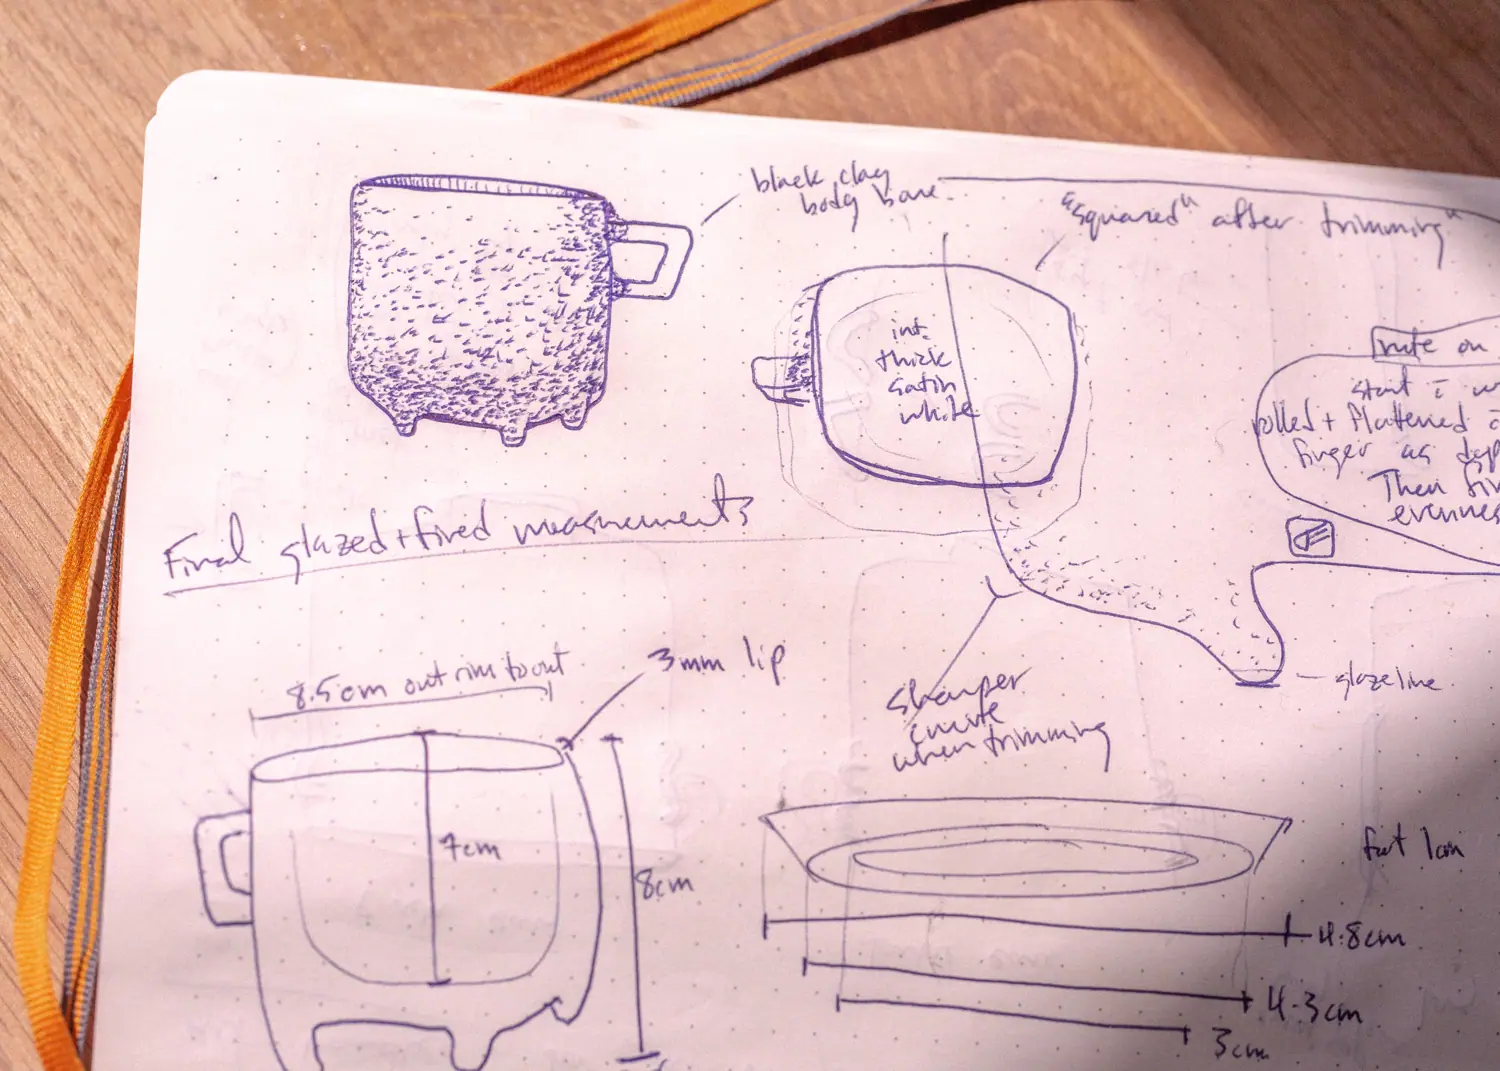 black clay
body bare
"squared" after trimming"
int.
thick
satin
white
note on
rolled + flattened
finger as
Then
evenness
Final glazed + fired measurements
8.5cm out rim to out
3mm lip
7cm
8cm
sharper
curve
when trimming
glaze line
foot 1cm
4.8cm
4.3cm
3cm